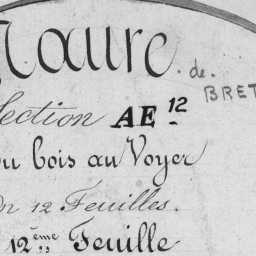 Maure de BRET
Section AE 12
du bois au Voyer
En 12 Feuilles.
12ème Feuille